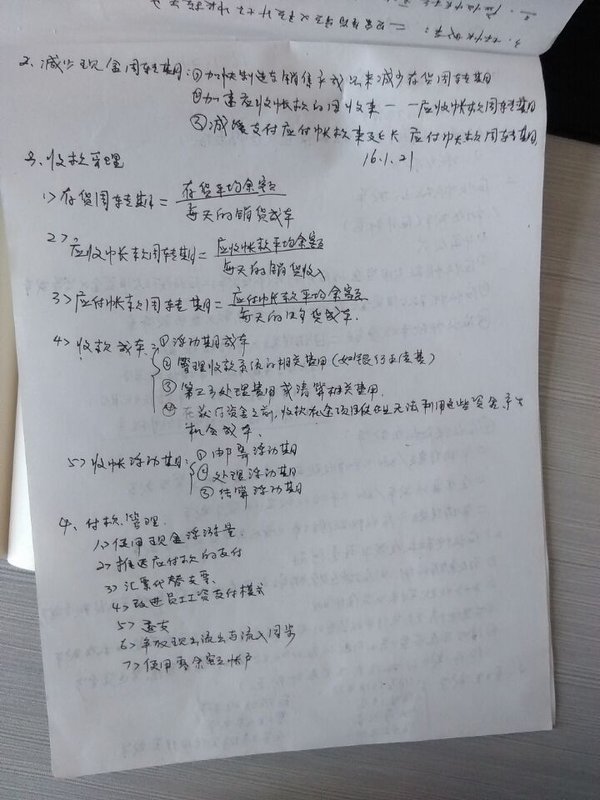 2、减少现金周转期:①加快制造与销售产成品来减少存货周转期
②加速应收帐款的回收来——应收帐款周转期
③减缓支付应付帐款来延长 应付帐款周转期
16.1.21
3、收款管理
1>存货周转期=存货平均余额/每天的销货成本
2>应收帐款周转期=应收帐款平均余额/每天的销货收入
3>应付帐款周转期=应付帐款平均余额/每天的购货成本.
4>收款成本:①浮动期成本
②管理收款系统的相关费用(如银行手续费)
③第三方处理费用或清算相关费用.
④在获得资金之前,收款在途项目使企业无法利用这些资金产生
机会成本.
5>收帐浮动期:①邮寄浮动期
②处理浮动期
③结算浮动期
4、付款管理.
1>使用现金浮游量
2>推迟应付款的支付
3>汇票代替支票.
4>改进员工工资支付模式
5>透支
6>争取现金流出与流入同步
7>使用零余额帐户